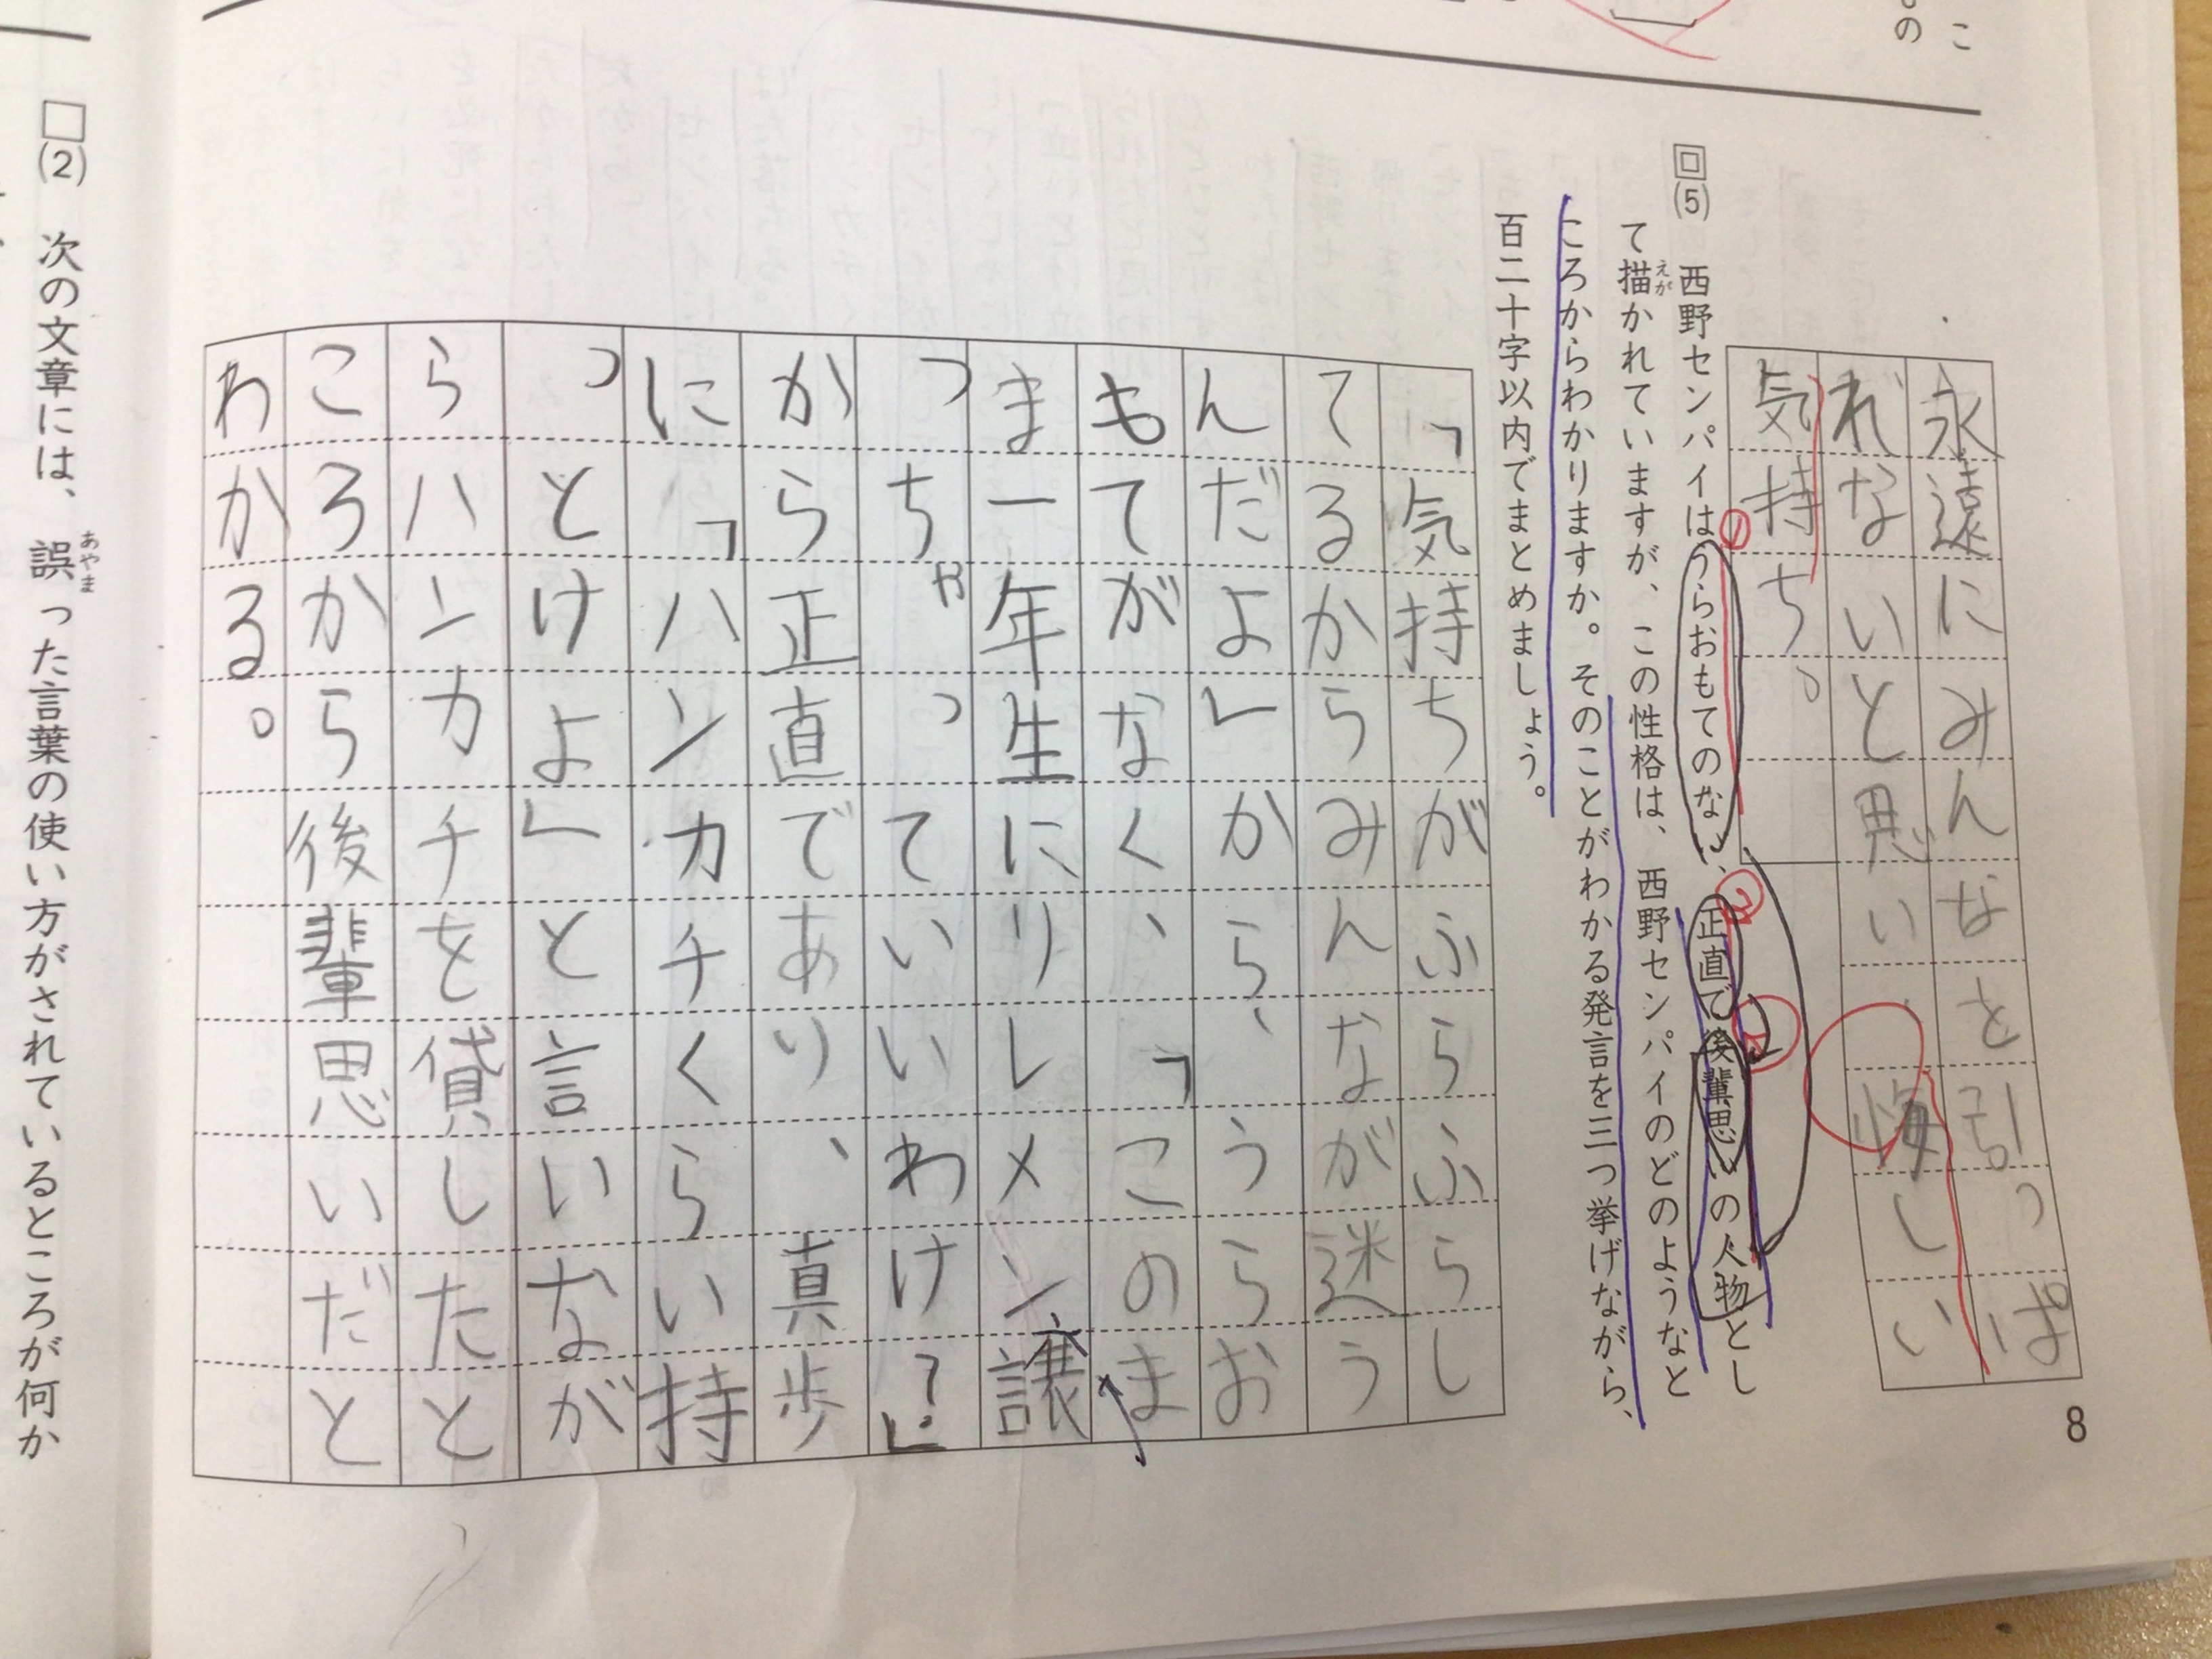 こ
の
永遠にみんなを引っぱ
れないと思い、悔しい
気持ち。
8
(5) 西野センパイはうらおもてのない、正直で後輩思いの人物とし
て描かれていますが、この性格は、西野センパイのどのようなと
ころからわかりますか。そのことがわかる発言を三つ挙げながら、
百二十字以内でまとめましょう。
えが
① ③ ②
「気持ちがふらふらし
てるからみんなが迷う
んだよ」から、うらお
もてがなく、「このま
ま一年生にリレメン譲
っちゃっていいわけ?」
から正直であり、真歩
に「ハンカチくらい持
っとけよ」と言いなが
らハンカチを貸したと
ころから後輩思いだと
わかる。
(2) 次の文章には、誤った言葉の使い方がされているところが何か
あやま